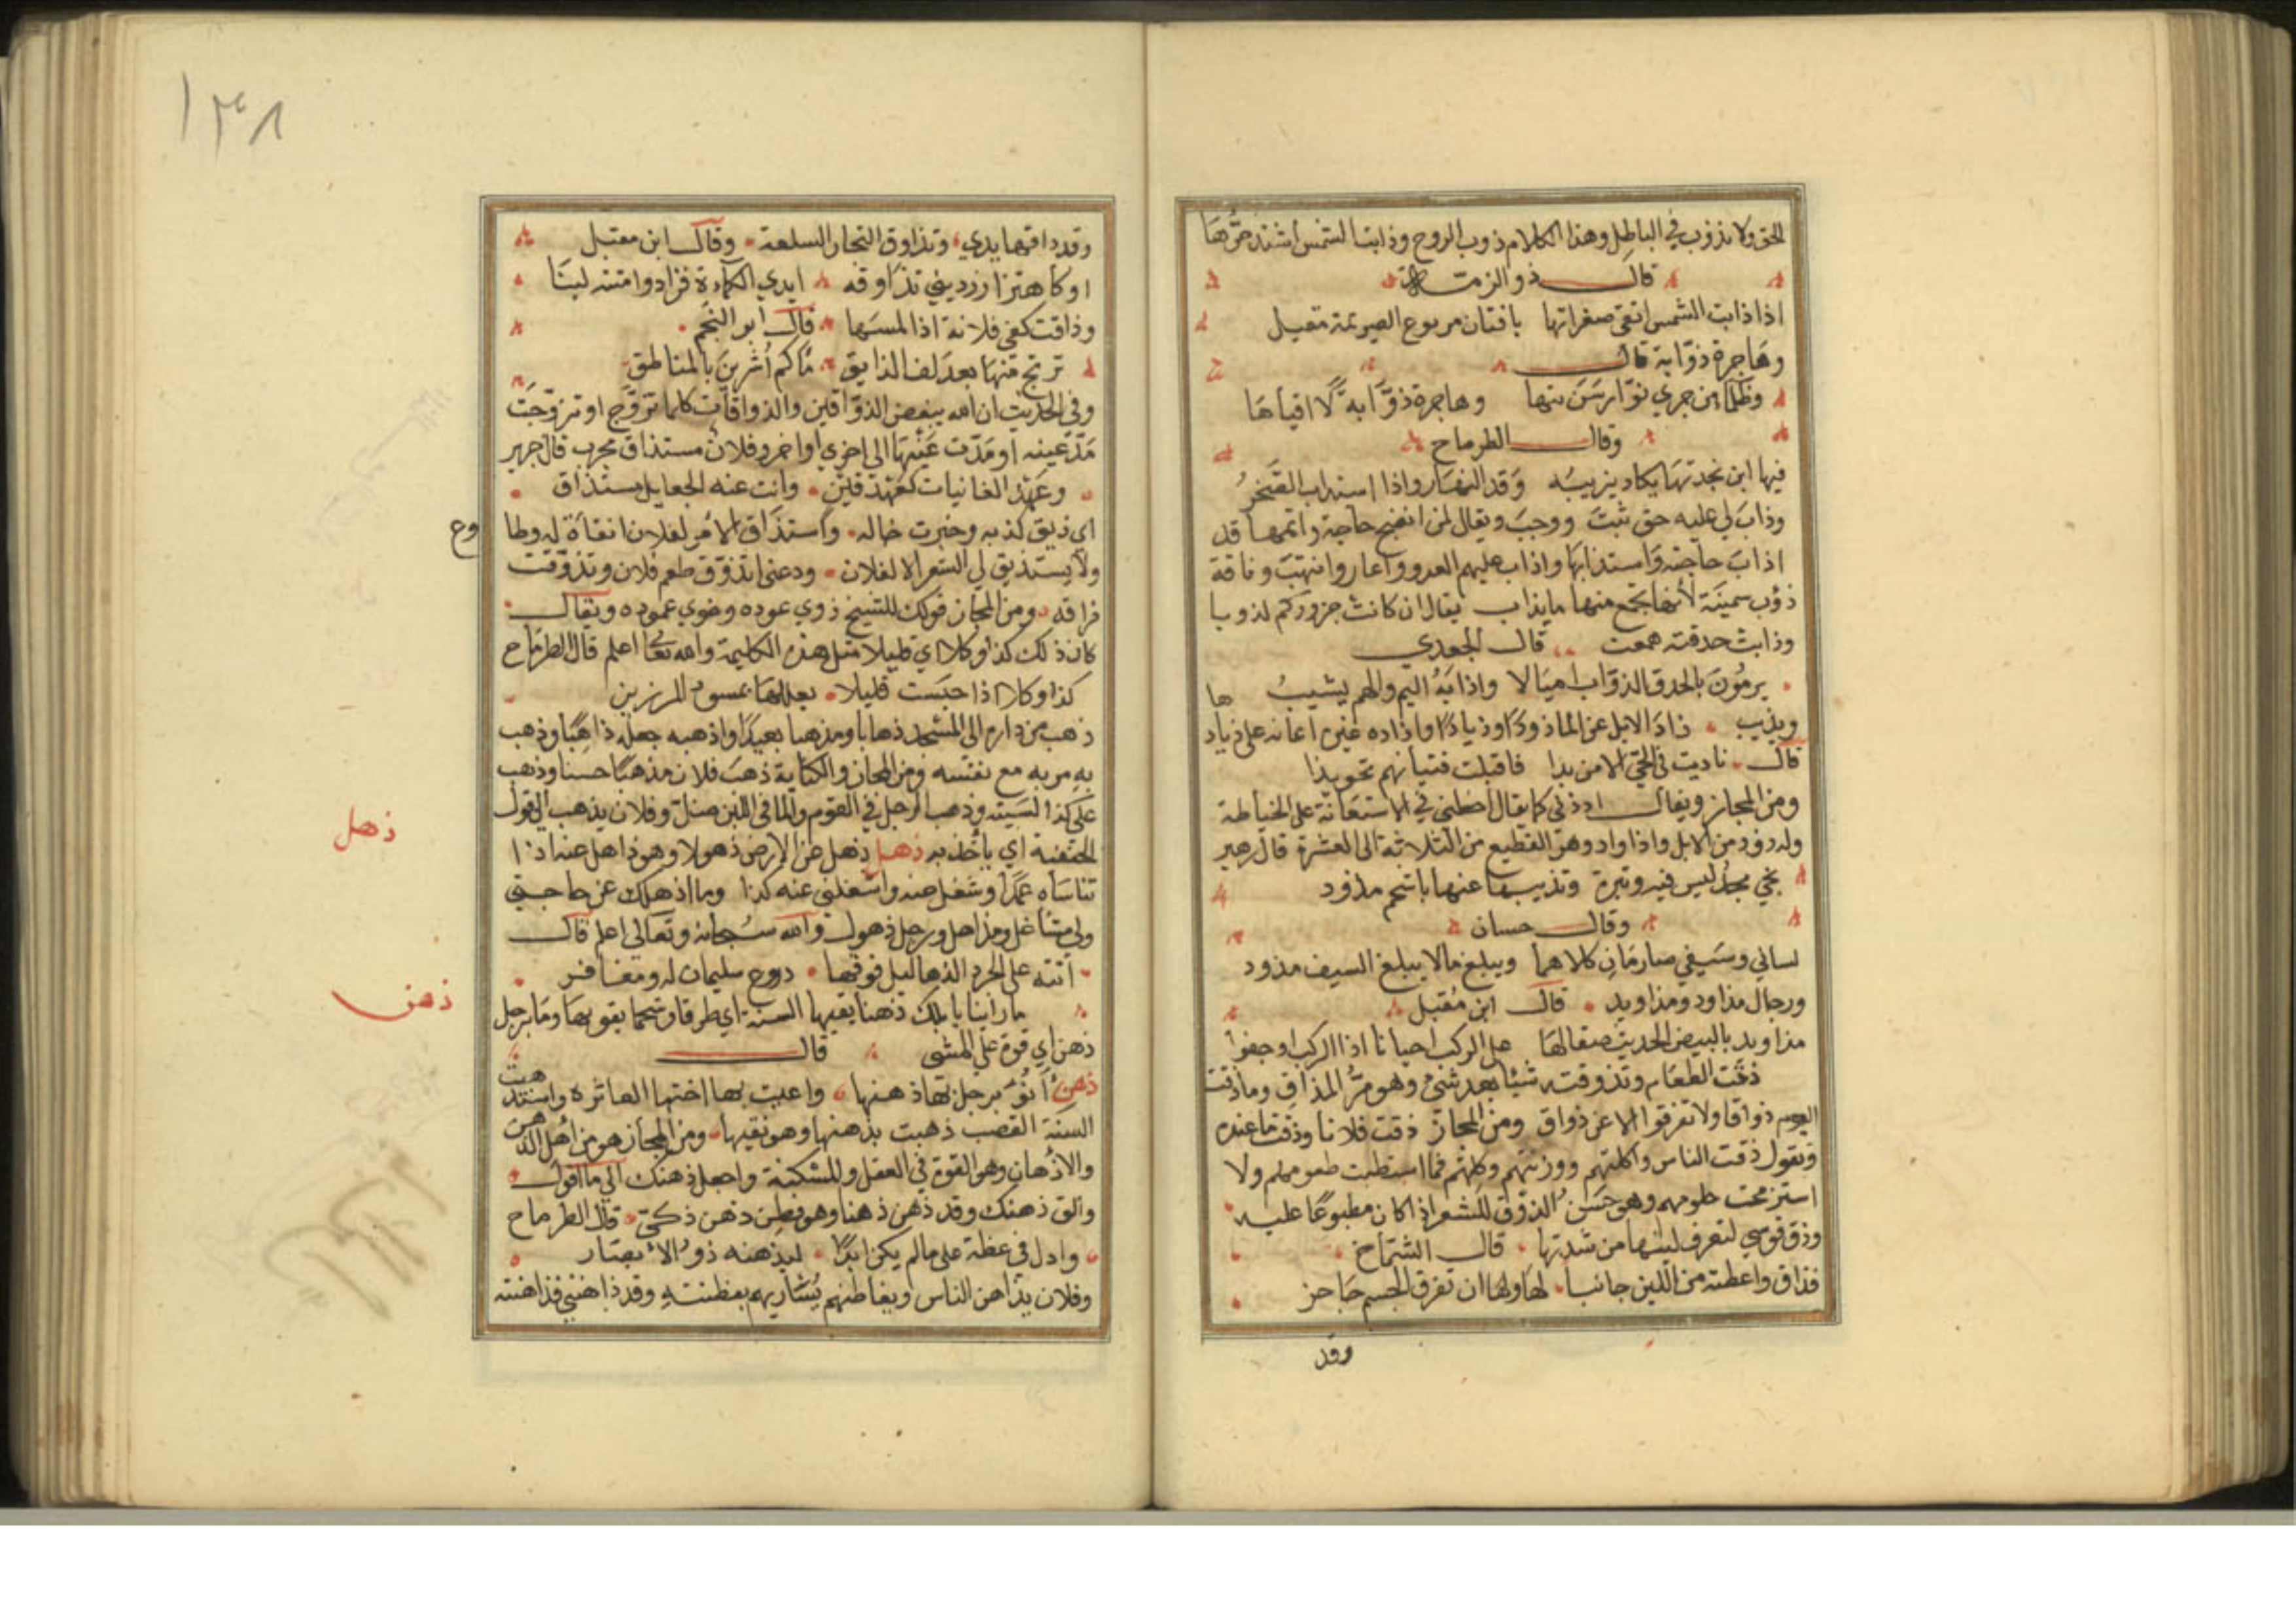 الحق ولا نذوب في الباطل وهذا الكلام ذوب الروح وذابت الشمس اشتد حرّها
قال ذو الرمة
اذا ذابت الشمس اتقى صقراتها بافنان مربوع الصريمة معبل
وهاجرة ذوّابة قال
وظلماء من جري نوّار سريتها وهاجرة ذوّابة لا اقيلها
وقال الطرماح
فيها ابن بجدتها يكاد يذيبه وقد النهار اذا استذاب الصّيخد
وذاب لي عليه حق ثبت ووجب ويقال لمن انضج حاجة واتمها قد
اذاب حاجته واستذابها واذاب عليهم العدو واغاروا انتهب وناقة
ذؤب سمينة لانها يجمع منها ما يذاب يقال ان كانت جزوركم لذوبا
وذابت حدقته همعت قال الجعدي
يرمُونَ بالحدق الذوّاب اميالا واذابهُ اليم والهم يشيبُ ها
ويذيب ذادَ الابل عن الماء ذودًا وذيادًا واذاده غيره اعانه على ذياد
قال ناديت في الحيّ الا من بدا فاقبلت فتيانهم تخويذا
ومن المجاز ويقال اذذني كما يقال اخطني في الاستعانة على الخياطة
وله ذود من الابل واذاواد وهو القطيع من الثلاثة الى العشرة قال زهير
نجي مجدٌ ليس فيه وتيرة وتذبيبها عنها باسحم مذود
وقال حسان
لساني وسيفي صارمان كلاهما ويبلغ مالا يبلغ السيف مذود
ورجال مذاود ومذاويد قال ابن مُقبل
مذاويد بالبيض الحديث صقالها عن الركب احيانا اذا الركب اوجفوا
ذقت الطعام وتذوقته شيئا بعد شئ وهو مرّ المذاق وما ذقت
اليوم ذواقا ولا تفرقوا الا عن ذواق ومن المجاز ذقت فلانا وذقت ما عنده
وتقول ذقت الناس واكلتهم ووزنتهم وكلتهم فما استطبت طعومهم ولا
استرجحت حلومهم وهو حسن الذوق للشعر اذا كان مطبوعًا عليه
وذق قوسي لتعرف لينها من شدتها قال الشمّاخ
فذاق واعطته من اللين جانبا لها ولها ان تغرق الجسم حاجز
وقد
١٣٨
وقد ذاقتها يدي وتذاوق التجار السلعة وقال ابن مقبل
او كاهتزاز رديني تذاوقه ايدي الكماة فزادوا متنه لينا
وذاقت كفي فلانة اذا لمسها قال ابو النجم
ترتج منها بعد لف الذايق ماكم أشربن بالمناطق
وفي الحديث ان الله يبغض الذوّاقين والذواقات كلما تزوّج او تزوّجت
مَدّ عينه او مَدّت عينها الى اخري او اخر وفلان مستذاق مجرب قال جرير
وعهد الغانيات كعهد قين وانت عنه الجعايل مستذاق
اي ذيق كذبه وخبرت حاله واستذاق الامر لفلان انقاد له وطا
وع
ولا يستذيق لي الشعر الا لفلان ودعني اتذوّق طعم فلان وتذوّقت
فراقه ومن المجاز قولك للشيخ ذوي عوده وخوي عموده ويقال
كان ذلك كذا وكلا اي قليلا مثل هذه الكلمة والله تعالى اعلم قال الطرماح
كذا وكلا اذا حبست قليلا
ذهب من داره الى المسجد ذهابا ومذهبا بعيدًا واذهبه جعله ذاهبًا وذهب
به مر به مع نفسه ومن المجاز والكناية ذهب فلان مذهبًا حسنا وذهب
علي كذا نسيته وذهب الرجل في القوم والماء في اللبن ضلّ وفلان يذهب الى قول
الحنفية اي ياخذ به ذهل ذهل عن الارض ذهولا وهو ذاهل عنه اذا
ذهل
تناساه عمدًا وشغل عنه واشغلني عنه كذا وما اذهلك عن حاجتي
ولي مشاغل ومذاهل ورجل ذهول والله سبحانه وتعالى اعلم قال
أتته على الجرد الذهاليل فوقها دروع سليمان له ومغافر
ذهن
ما راينا بابلك ذهنا يقيها السنة اي طرقا وشحما يقويها وما برجل
ذهن اي قوة علي المشي قال
ذهن أنوءَ برجل بها ذهنها واعيت بها اختها العاثره واستذهبت
السنة القصب ذهبت بذهنها وهو نقيها ومن المجاز هو من اهل الذهن
والاذهان وهو القوة في العقل وللسكنة واجعل ذهنك الى ما اقول
والق ذهنك وقد ذهن ذهنا وهو فطن ذهن ذكيّ قال الطرماح
وادل في عظة على مالم يكن ابدًا ليذهنه ذوُ الابصار
وفلان يذاهن الناس ويفاطنهم يُشاريهم بفطنته وقد ذاهنني فذاهنته